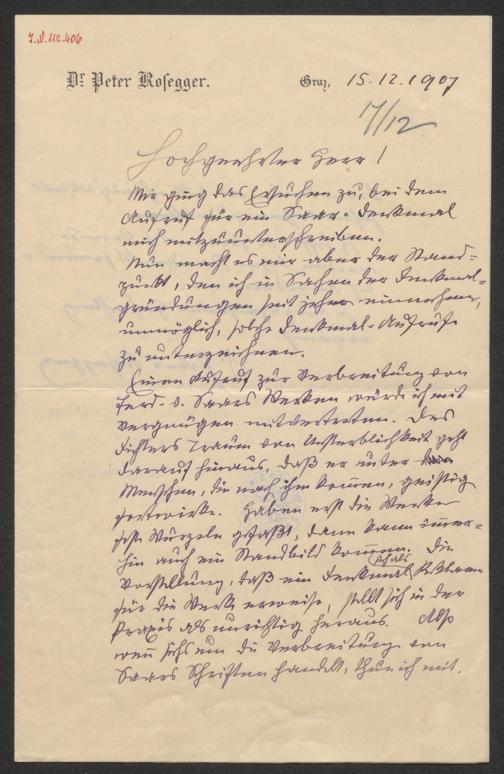 J.N. 112.406
Dr. Peter Rosegger.
Graz, 15.12.1907
17/12
Hochgeehrter Herr!
Mir ging das Ersuchen zu, bei dem
Aufruf für ein Saar-Denkmal
mich mitzuunterschreiben.
Nun macht es mir aber der Stand-
punkt, den ich in Sachen der Denkmal-
gründungen seit jeher einnehme,
unmöglich, solche Denkmal-Aufrufe
zu unterzeichnen.
Einen Aufruf zur Verbreitung von
Ferd. v. Saars Werken würde ich mit
Vergnügen mitvertreten. Des
Dichters Traum von Unsterblichkeit geht
darauf hinaus, daß er unter
Menschen, die nach ihm kommen, geistig
fortwirke. Haben erst die Werke
feste Wurzeln gefaßt, dann kann immer-
hin auch ein Standbild kommen. Die
Vorstellung, daß ein Denkmal sich als Reklame
für die Werke erweise, stellt sich in der
Praxis als unrichtig heraus. Also
wenn sichs um die Verbreitung von
Saars Schriften handelt, thue ich mit.